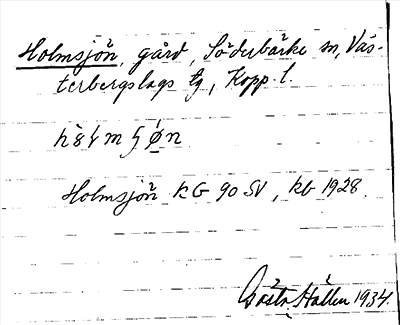 Holmsjön, gård, Söderbärke sn, Väs-
terbergslags tg, Kopp. l.
Holmsjön KG 90 SV, kb 1928.
Gösta Hallén 1934.